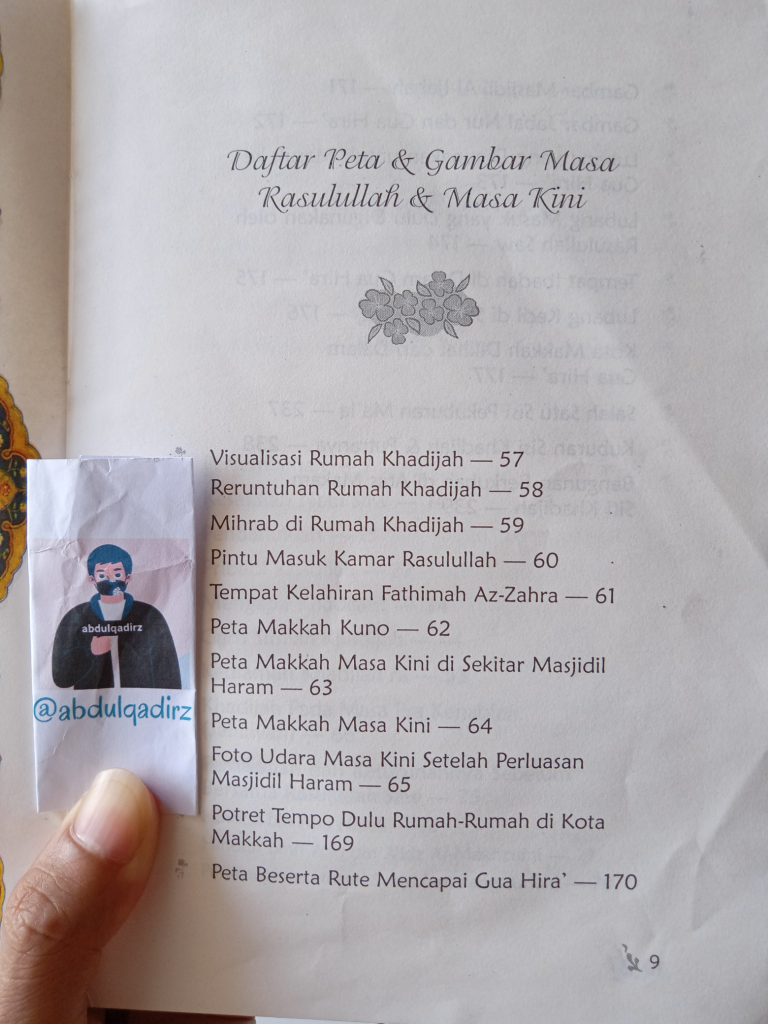 Daftar Peta & Gambar Masa
Rasulullah & Masa Kini
Visualisasi Rumah Khadijah — 57
Reruntuhan Rumah Khadijah — 58
Mihrab di Rumah Khadijah — 59
Pintu Masuk Kamar Rasulullah — 60
Tempat Kelahiran Fathimah Az-Zahra — 61
Peta Makkah Kuno — 62
Peta Makkah Masa Kini di Sekitar Masjidil
Haram — 63
Peta Makkah Masa Kini — 64
Foto Udara Masa Kini Setelah Perluasan
Masjidil Haram — 65
Potret Tempo Dulu Rumah-Rumah di Kota
Makkah — 169
Peta Beserta Rute Mencapai Gua Hira' — 170
9
abdulqadirz
@abdulqadirz